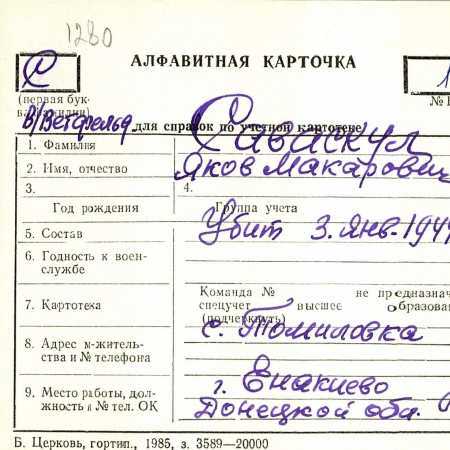 1280
АЛФАВИТНАЯ КАРТОЧКА
С
1
(первая бук-
ва фамилии)
№ 
В/Ветфельд для справок по учетной картотеке
1. Фамилия Саваскул
2. Имя, отчество Яков Макарович
3. 4.
Год рождения Группа учета
5. Состав Убит 3. янв. 194
6. Годность к воен-
службе
Команда № не предназнач
7. Картотека спецучет высшее образова
(подчеркнуть)
с. Томиловка
8. Адрес м-жительст-
ва и № телефона
г. Енакиево
9. Место работы, дол-
жность и № тел. ОК Донецкой обл.
Б. Церковь, гортип., 1985, з. 3589—20000